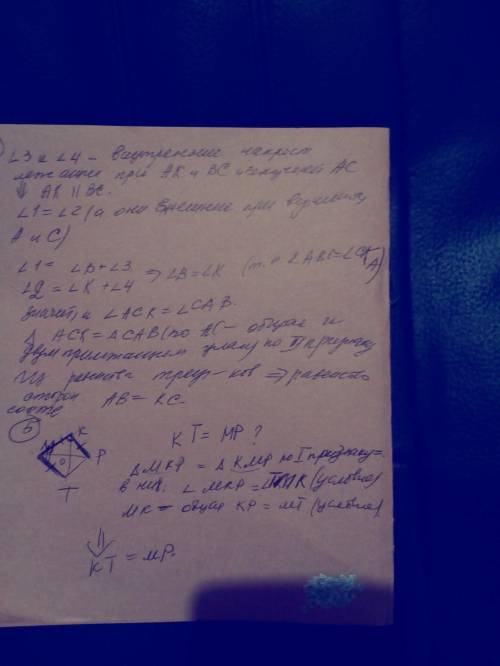 ∠3 и ∠4 – внутренние накрест
лежащие при AK и BC и секущей AC
⇓ AK || BC.
∠1 = ∠2 (а они внешние при вершинах
A и C)
∠1 = ∠B + ∠3
∠2 = ∠K + ∠4
⇒ ∠B = ∠K (т.к ∠ABC = ∠CKA)
значит, и ∠ACK = ∠CAB.
Δ ACK = ΔCAB (по AC – общая и
двум прилежащим углам) по II признаку
Из равенства треуг-ков ⇒ равенство
сторон AB = KC
5
M K
O P
T
KT = MP?
ΔMKP = ΔKMP по I признаку =
в них. ∠MKP = TMK (условие)
MK – общая KP = MT (условие)
⇓
KT = MP.